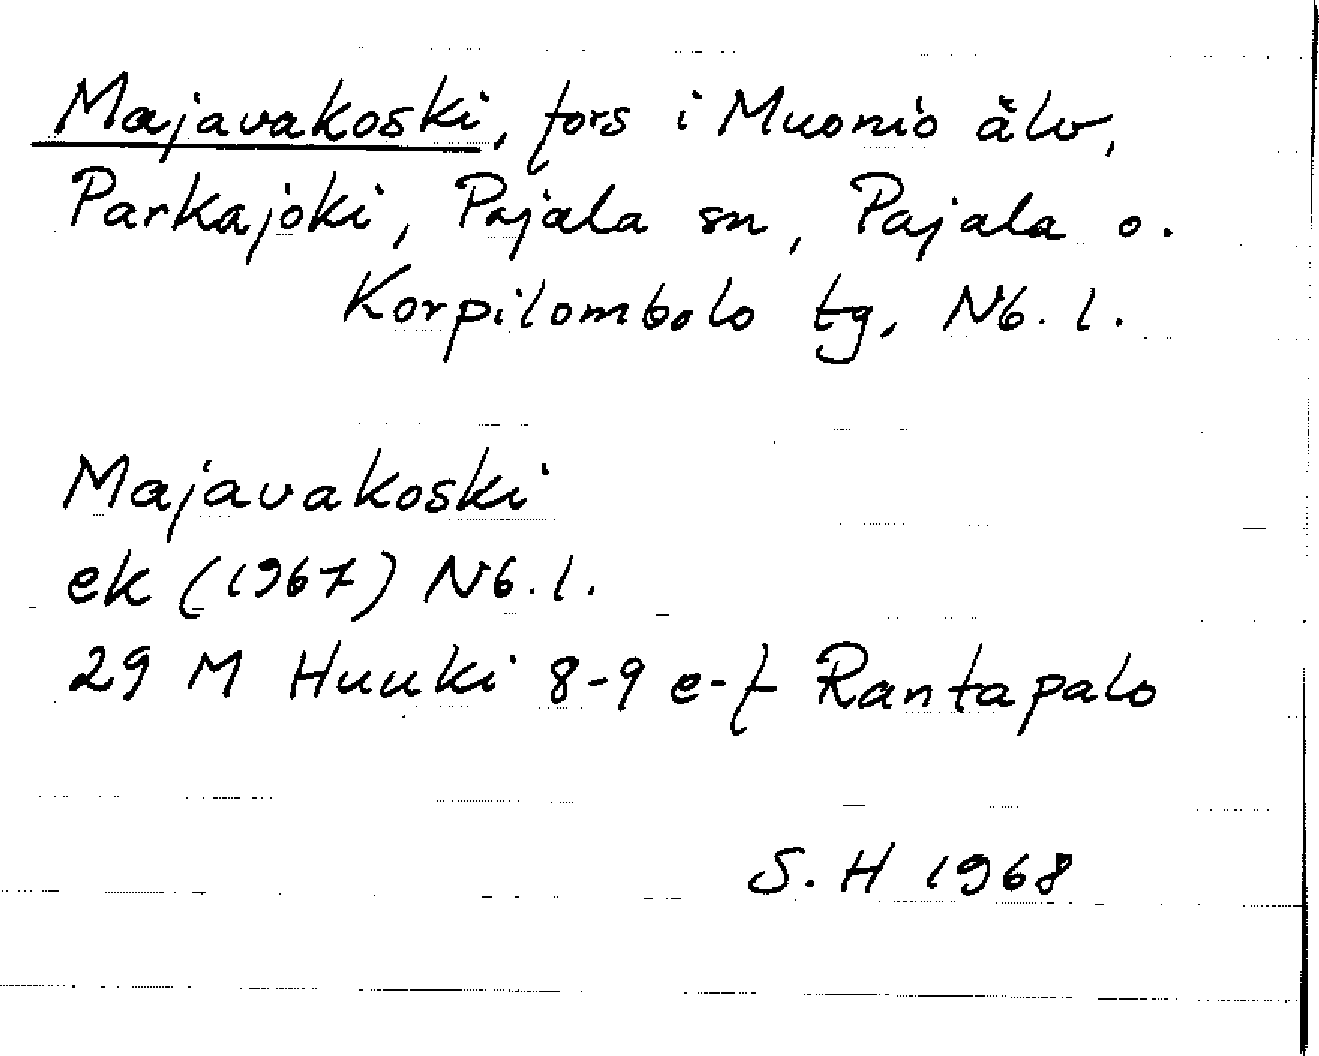 Majavakoski, fors i Muonio älv,
Parkajoki, Pajala sn, Pajala o.
Korpilombolo tg, Nb. l.
Majavakoski
ek (1967) Nb. l.
29 M Huuki 8-9 e-f Rantapalo
S. H 1968